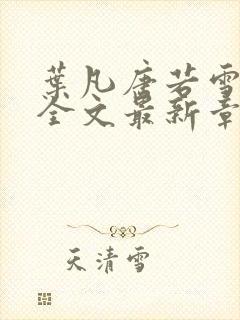 葉凡唐若雪
全文最新章
天清雪